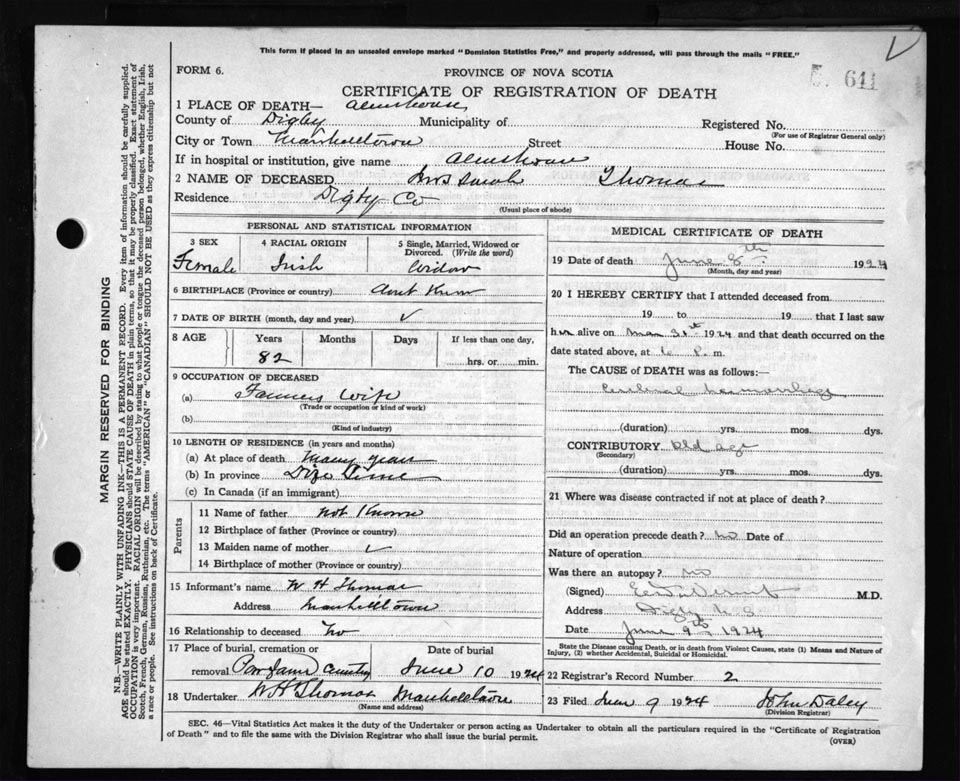 This form if placed in an unsealed envelope marked "Dominion Statistics Free," and properly addressed, will pass through the mails "FREE."
FORM 6.
PROVINCE OF NOVA SCOTIA
641
CERTIFICATE OF REGISTRATION OF DEATH
1 PLACE OF DEATH— Almshouse
County of Digby Municipality of Registered No.
(For use of Registrar General only)
City or Town Marshelltown Street House No.
If in hospital or institution, give name Almshouse
2 NAME OF DECEASED Mrs Sarah Thomas
Residence Digby Co
(Usual place of abode)
PERSONAL AND STATISTICAL INFORMATION
3 SEX
Female
4 RACIAL ORIGIN
Irish
5 Single, Married, Widowed or Divorced. (Write the word)
Widow
6 BIRTHPLACE (Province or country)
7 DATE OF BIRTH (month, day and year) ✓
8 AGE Years Months Days If less than one day,
82 hrs. or min.
9 OCCUPATION OF DECEASED
(a) Farmers Wife
(Trade or occupation or kind of work)
(b)
(Kind of industry)
10 LENGTH OF RESIDENCE (in years and months)
(a) At place of death Many years
(b) In province Time
(c) In Canada (if an immigrant)
Parents
11 Name of father Not Known
12 Birthplace of father (Province or country)
13 Maiden name of mother ✓
14 Birthplace of mother (Province or country)
15 Informant's name W H Thomas
Address Marshelltown
16 Relationship to deceased No
17 Place of burial, cremation or Date of burial
removal Poor Farm June 10 1924
18 Undertaker W H Thomas Marshelltown
(Name and address)
MEDICAL CERTIFICATE OF DEATH
19 Date of death June 8th 1924
(Month, day and year)
20 I HEREBY CERTIFY that I attended deceased from
19 to 19 that I last saw
her alive on May 31st 1924 and that death occurred on the
date stated above, at 6 P. m.
The CAUSE of DEATH was as follows:—
Cerebral hemorrhage
(duration) yrs. mos. dys.
CONTRIBUTORY Old age
(Secondary)
(duration) yrs. mos. dys.
21 Where was disease contracted if not at place of death?
Did an operation precede death? No Date of
Nature of operation
Was there an autopsy? no
(Signed) M.D.
Address Digby N.S.
Date June 9th 1924
State the Disease causing Death, or in death from Violent Causes, state (1) Means and Nature of Injury, (2) whether Accidental, Suicidal or Homicidal.
22 Registrar's Record Number 2
23 Filed June 9 1924 John Daley
(Division Registrar)
SEC. 46—Vital Statistics Act makes it the duty of the Undertaker or person acting as Undertaker to obtain all the particulars required in the "Certificate of Registration
of Death" and to file the same with the Division Registrar who shall issue the burial permit. (OVER)
MARGIN RESERVED FOR BINDING
N.B.—WRITE PLAINLY WITH UNFADING INK—THIS IS A PERMANENT RECORD. Every item of information should be carefully supplied.
AGE should be stated EXACTLY. PHYSICIANS should STATE CAUSE OF DEATH in plain terms, so that it may be properly classified. Exact statement of
OCCUPATION is very important. RACIAL ORIGIN will be described by stating to what people or tongue the deceased person belonged, whether English, Irish,
Scotch, French, German, Russian, Ruthenian, etc. The terms "AMERICAN" or "CANADIAN" SHOULD NOT BE USED as they express citizenship but not
a race or people. See instructions on back of Certificate.